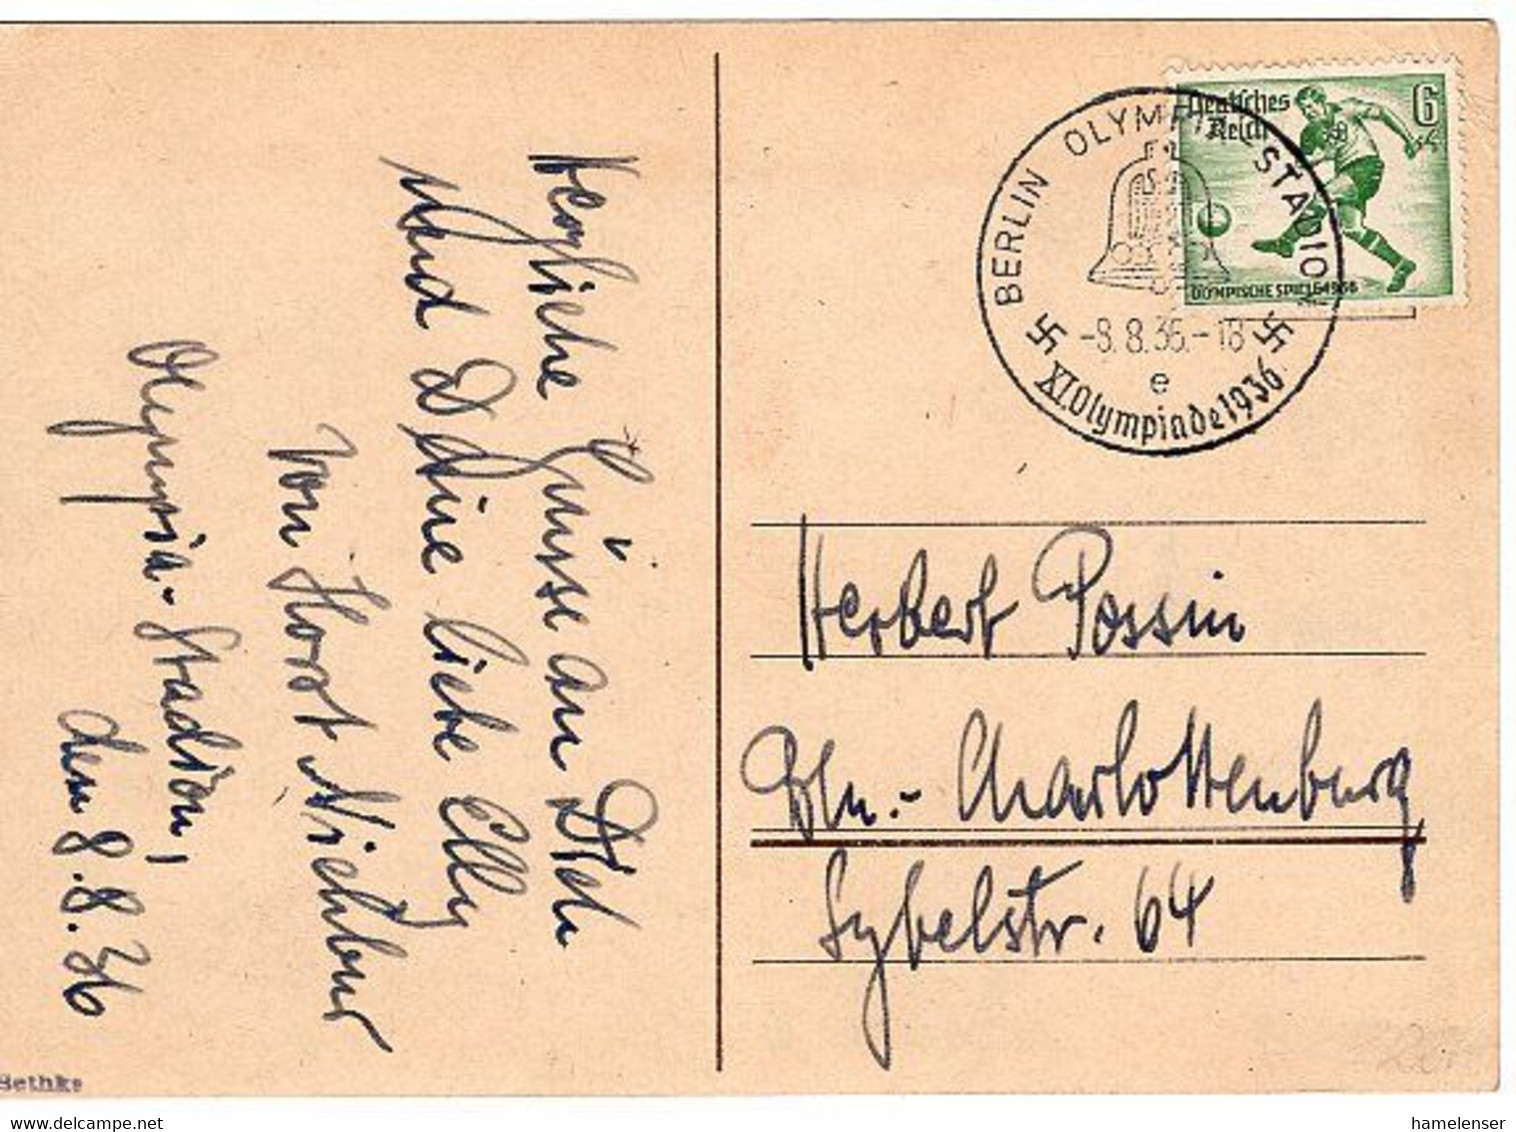 Herzliche Grüsse an Dich
und Deine liebe Elly
von Horst Niebur
Olympia-Stadion,
den 8.8.36
Bethke
BERLIN OLYMPIA STADION
-8.8.36.-18
e
XI. Olympiade 1936
Deutsches
Reich
6
+4
OLYMPISCHE SPIELE 1936
Herbert Possin
Bln.- Charlottenburg
Sybelstr. 64
www.delcampe.net
hamelenser